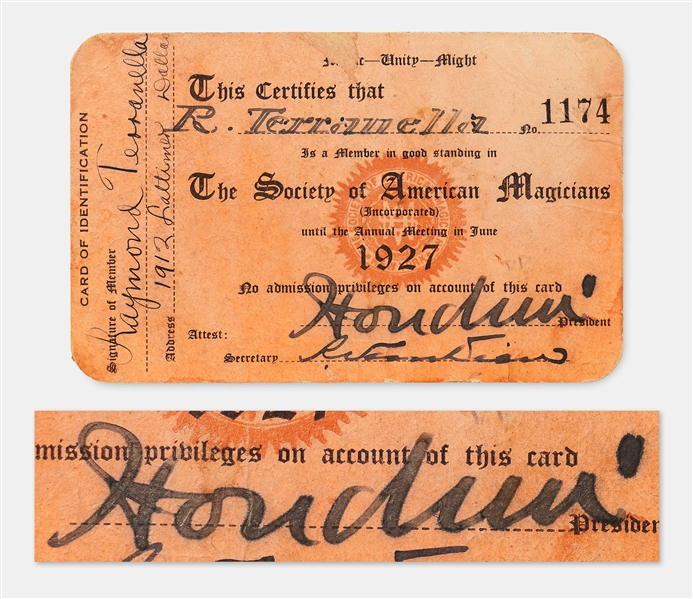 Unity—Might
This Certifies that
R. Terranella No. 1174
Is a Member in good standing in
The Society of American Magicians
(Incorporated)
until the Annual Meeting in June
1927
No admission privileges on account of this card
Houdini President
Attest:
Secretary
CARD OF IDENTIFICATION
Signature of Member Raymond Terranella
Address 1912 Lattimer Dallas
mission privileges on account of this card
Houdini Presiden